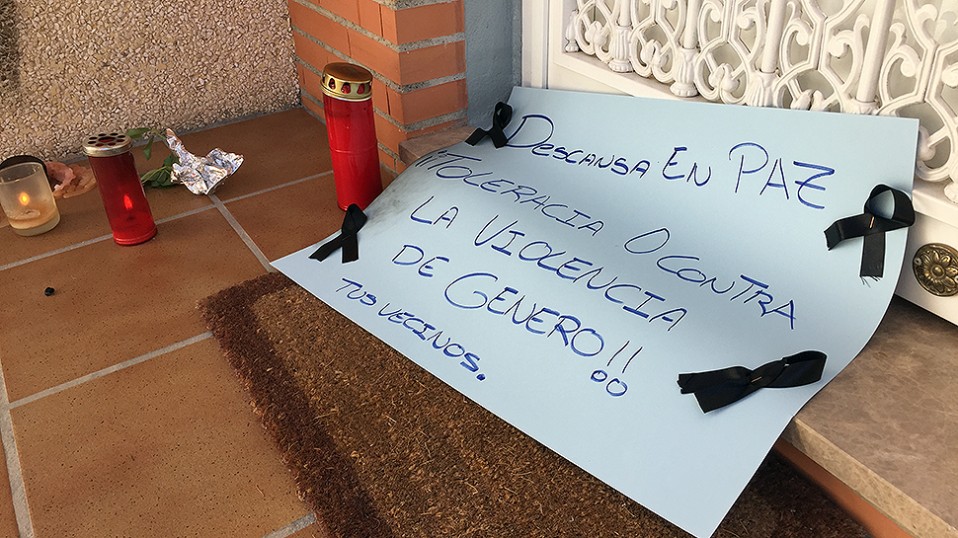 DESCANSA EN PAZ
¡¡TOLERACIA O CONTRA
LA VIOLENCIA
DE GENERO!!
TUS VECINOS.